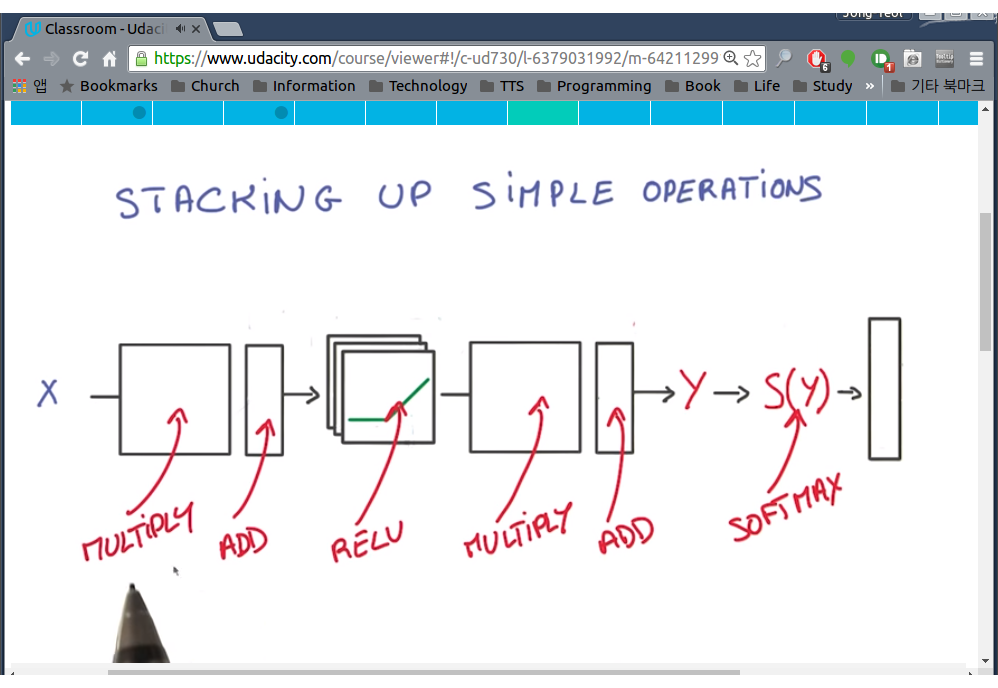 Classroom - Udaci
https://www.udacity.com/course/viewer#!/c-ud730/l-6379031992/m-64211299
6
1
앱 Bookmarks Church Information Technology TTS Programming Book Life Study » 기타 북마크
STACKiNG UP SiMPLE OPERATiONS
X Y S(Y)
MULTiPLY ADD RELU MULTiPLY ADD SOFTMAX